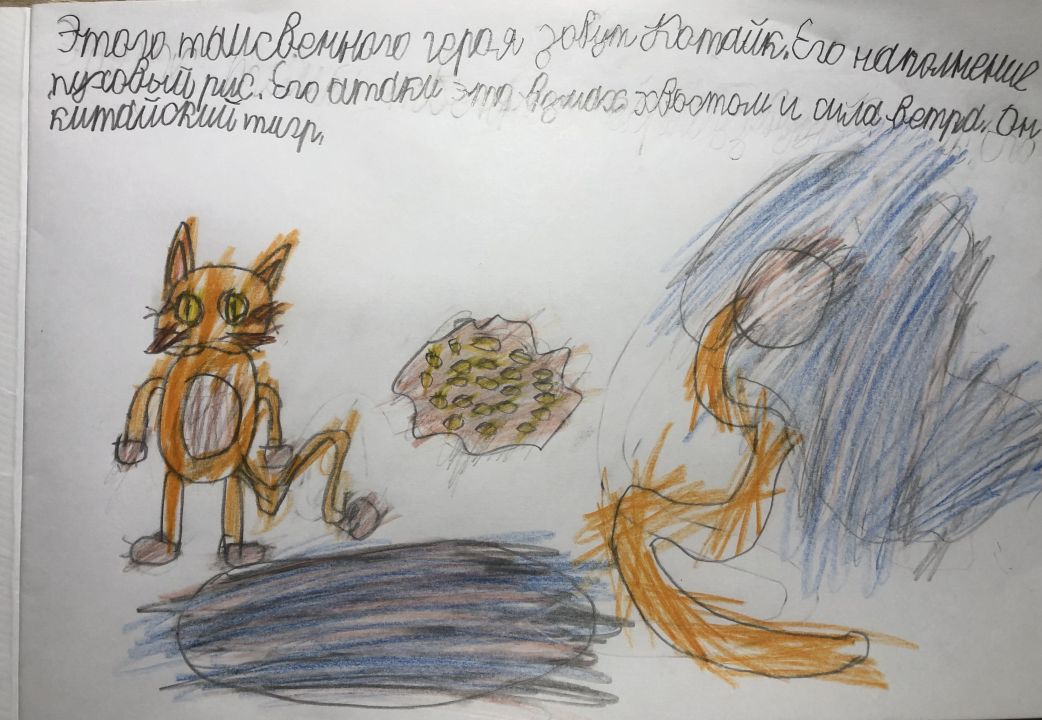 Этого таисвенного героя зовут Котайк. Его наполнение
пуховый рис. Его атаки это взмах хвостом и сила ветра. Он
китайский тигр.